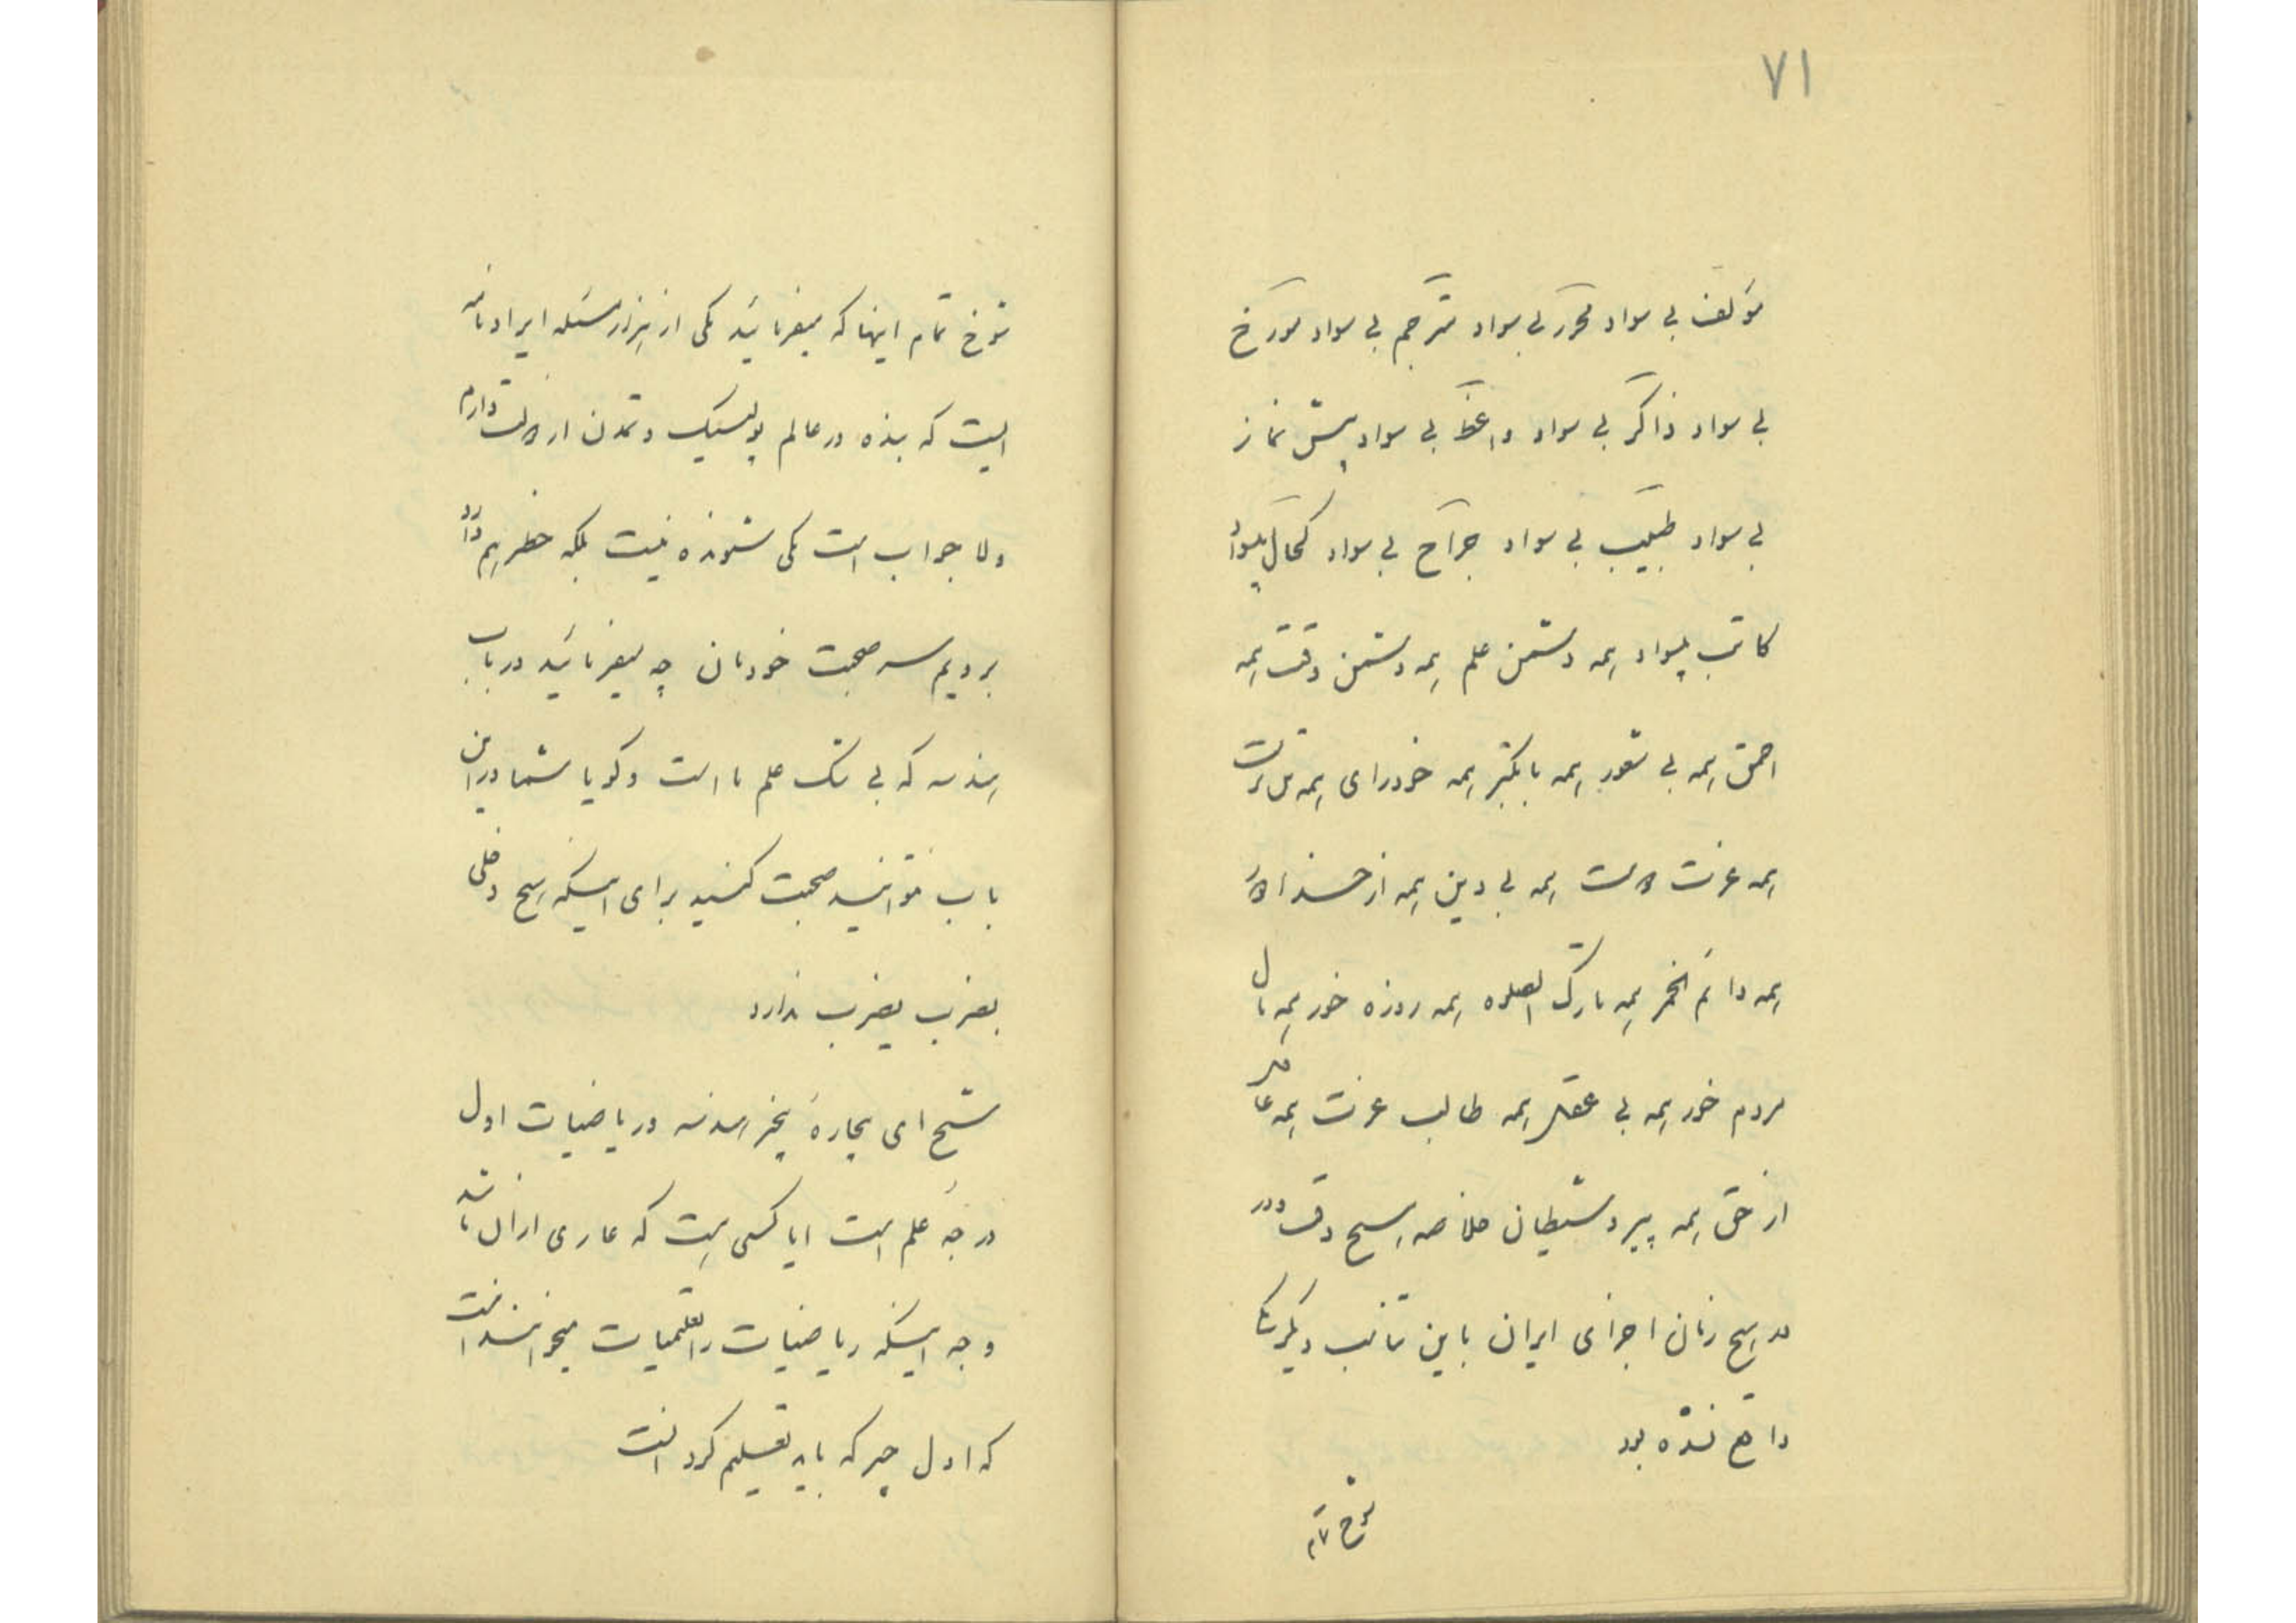 ۷۱
مؤلف بی سواد محرر بی سواد مترجم بی سواد مورخ
بی سواد ذاکر بی سواد واعظ بی سواد پیش نماز
بی سواد طبیب بی سواد جراح بی سواد کحال بیسواد
کاتب بیسواد همه دشمن علم همه دشمن وقت همه
احمق همه بی شعور همه با تکبر همه خودرای همه
همه عزت همه بی دین همه از خدا
همه دائم الخمر همه تارک الصلوه همه روزه خور همه مال
مردم خور همه بی عقل همه طالب عزت همه غافل
از حق همه پیرو شیطان خلاصه هیچ وقت و در
هیچ زمان اجزای ایران باین دیگر
واقع نشده بود
شوخ تمام
شوخ تمام اینها که میفرمائید یکی از هزار مسئله ایراد نامه
ایست که بنده در عالم پولیتیک و تمدن از دولت دارم
ولا جواب است یکی شنونده نیست بلکه خطر هم دارد
برویم سر صحبت خودمان چه میفرمائید در باب
هندسه که بی شک علم ما است و گویا شما در این
باب نتوانید صحبت کنید برای اینکه هیچ دخلی
بضرب یضرب ندارد
شیخ ای بیچارهٔ بیخبر هندسه و ریاضیات اول
درجهٔ علم است ایا کسی هست که عاری از آن باشد
وجه اینکه ریاضیات را تعلیمیات میخوانند انست
که اول چیز که باید تعلیم کرد انست